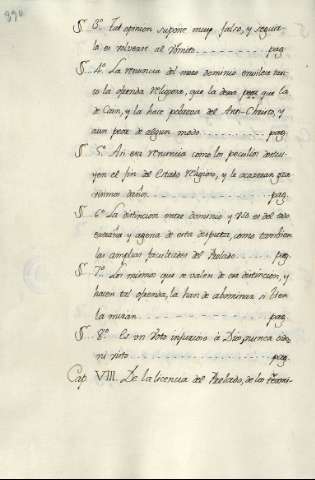 §. 3º. Tal opinion supone muy falso, y seguir-
la es volverse al Vomito. - - - - - - - - - pag.
§. 4º. La renuncia del mero dominio envilece tan-
to la ofrenda religiosa, que la dexa peor que la
de Cain, y la hace pobreza del Ante-Christo, y
aun peor de algun modo. - - - - - - - - - pag.
§. 5º. Asi esa renuncia como los peculios destru-
yen el fin del Estado religioso, y le acarrean gra-
visimos daños. - - - - - - - - - pag.
§. 6º. La distincion entre dominio y Uso es del todo
extraña y agena de esta disputa, como tambien
las amplias facultades del Prelado. - - - - pag.
§. 7º. Los mismos que se valen de esa distincion, y
hacen tal ofrenda, la han de abominar si bien
la miran. - - - - - - - - - pag.
§. 8º. Es un Voto injurioso à Dios, nunca oido,
ni visto. - - - - - - - - - pag.
Cap. VIII. De la licencia del Prelado, de los